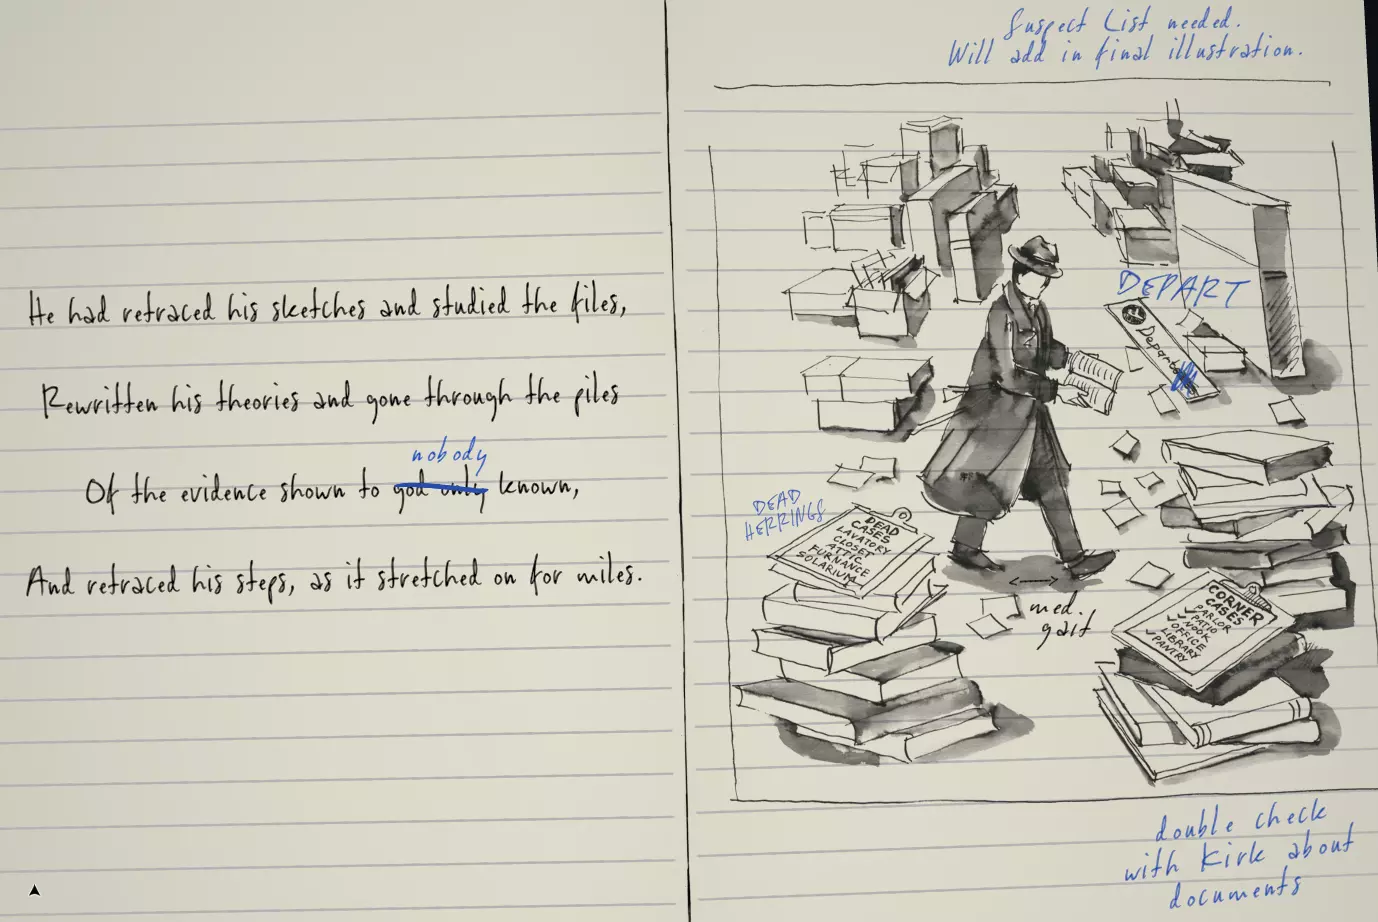 He had retraced his sketches and studied the files,
Rewritten his theories and gone through the piles
nobody
Of the evidence shown to god only known,
And retraced his steps, as it stretched on for miles.
Suspect List needed.
Will add in final illustration.
DEPART
Departe
DEAD
HERRINGS
DEAD
CASES
LAVATORY
CLOSET
ATTIC
FURNANCE
SOLARIUM
med.
gait
CORNER
CASES
PARLOR
PATIO
NOOK
OFFICE
LIBRARY
PANTRY
double check
with Kirk about
documents